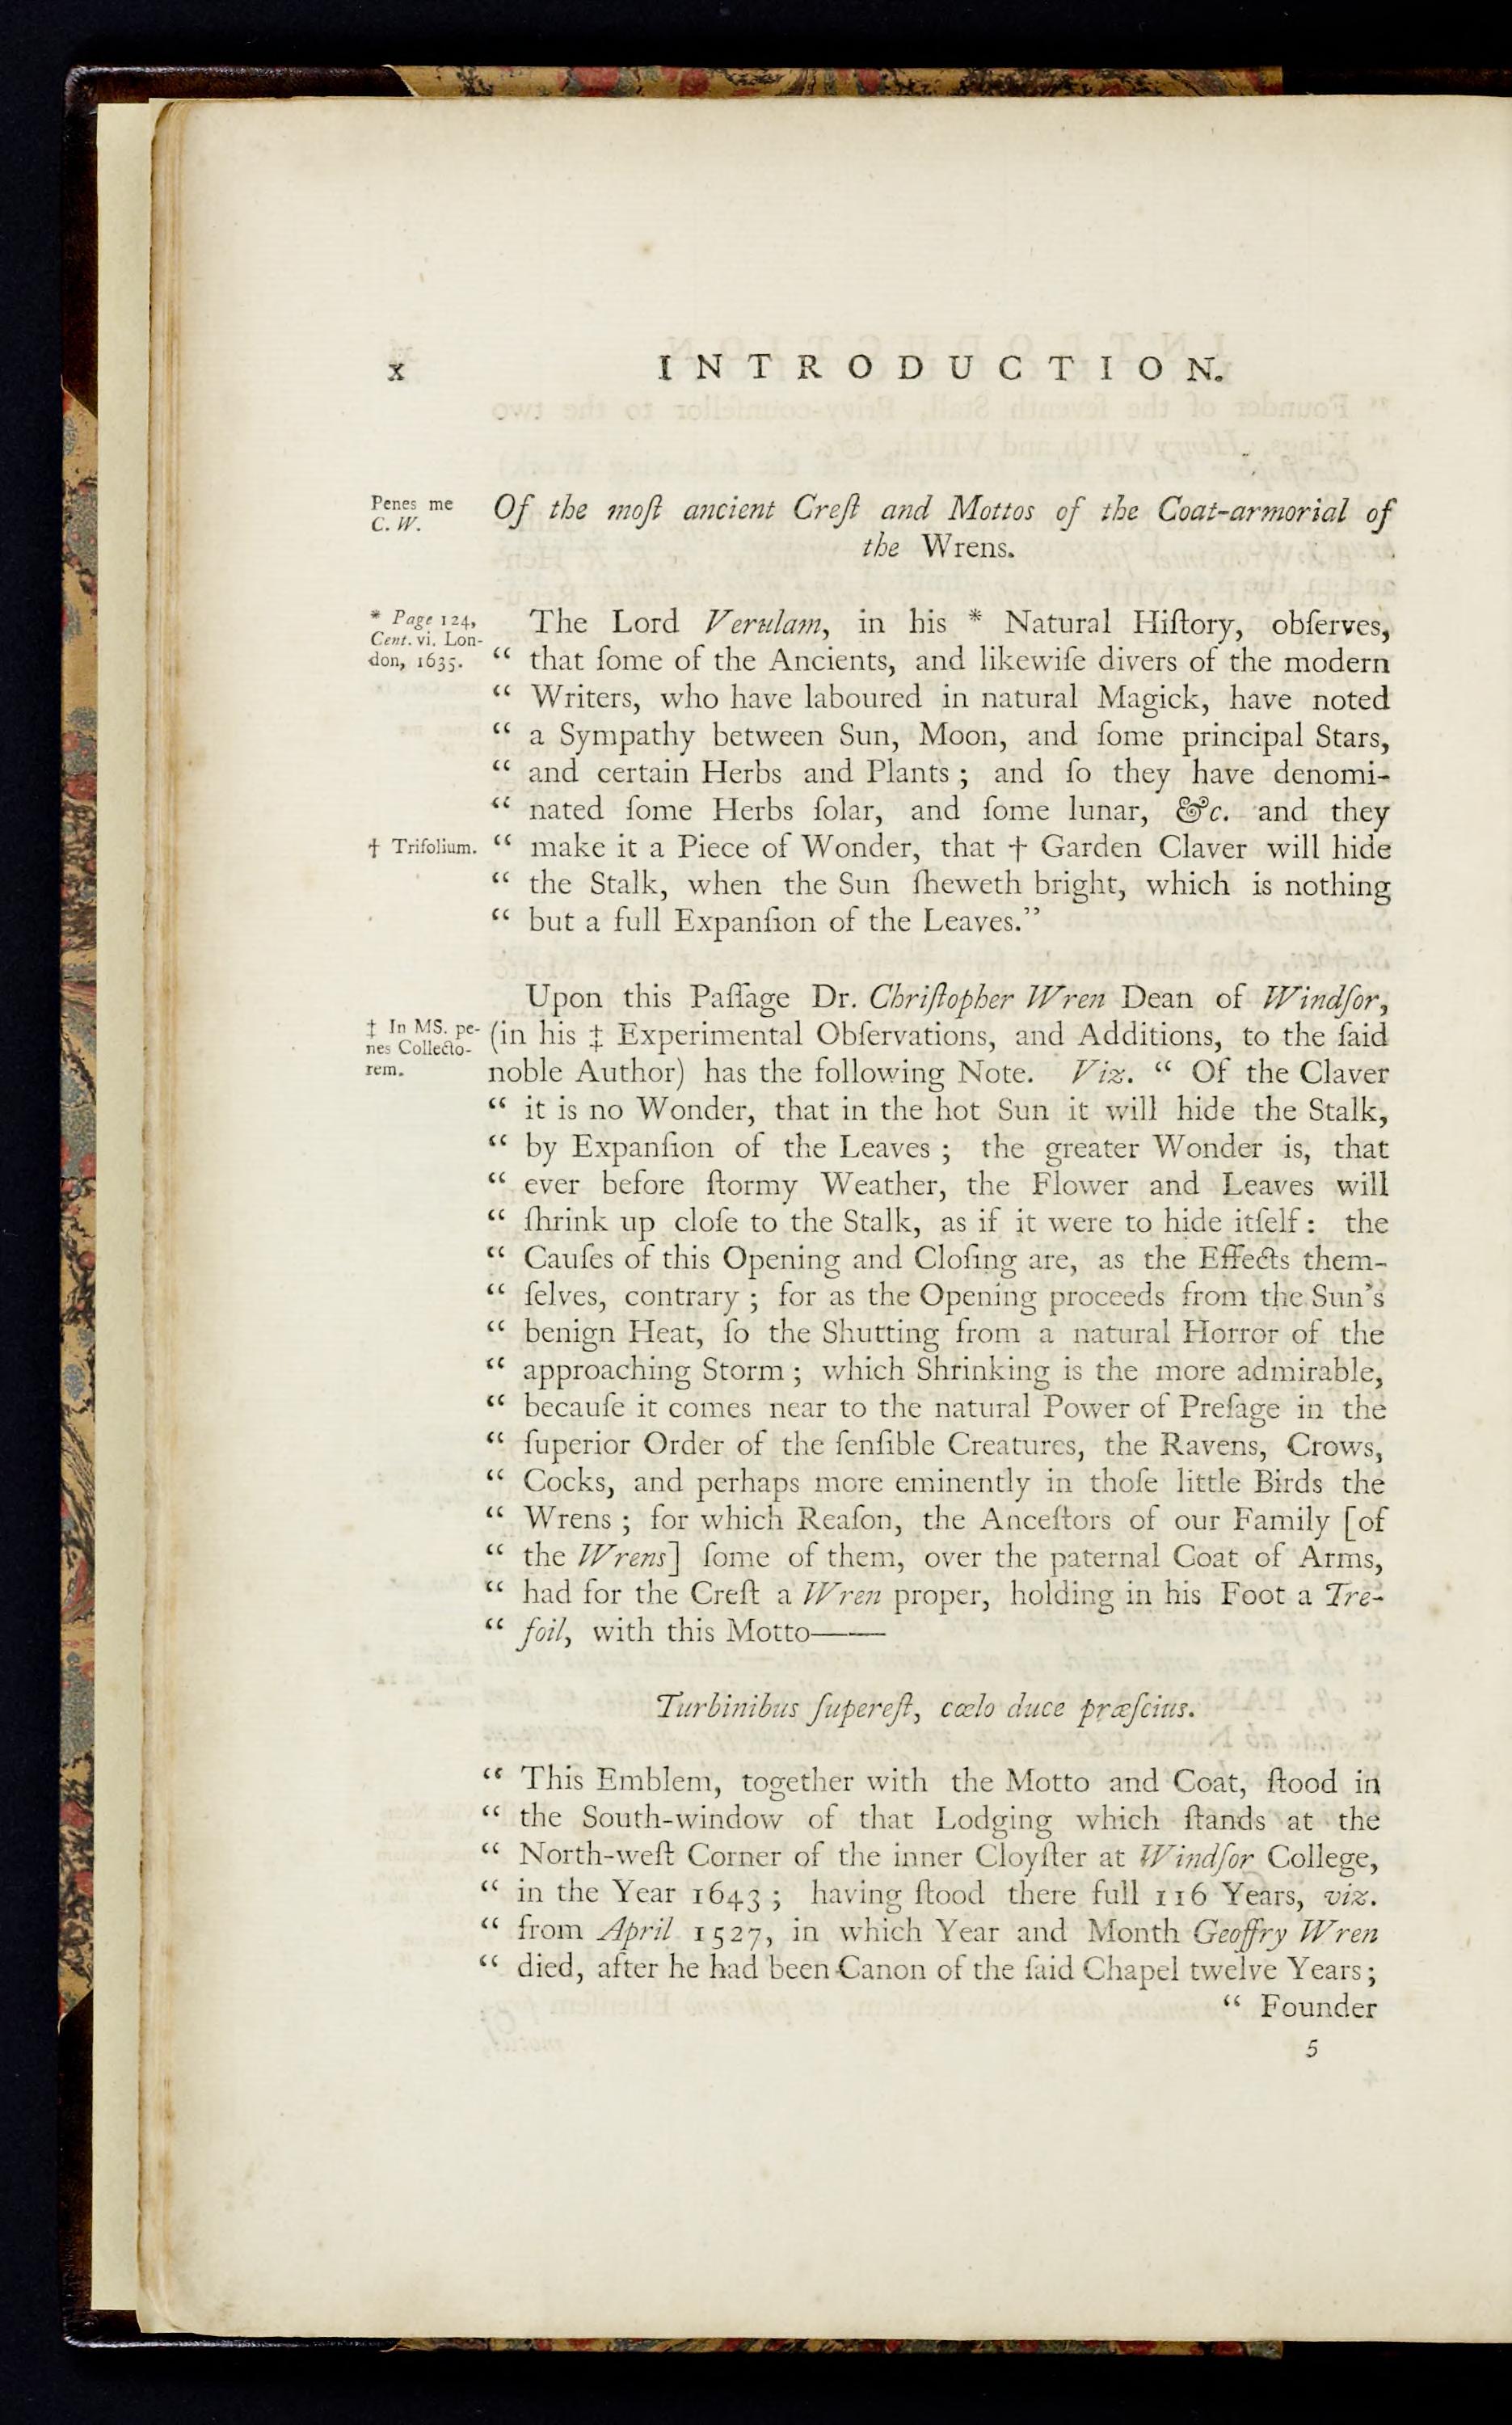 x INTRODUCTION.
Penes me
C. W.
Of the moſt ancient Creſt and Mottos of the Coat-armorial of
the Wrens.
* Page 124,
Cent. vi. Lon-
don, 1635.
The Lord Verulam, in his * Natural Hiſtory, obſerves,
“ that ſome of the Ancients, and likewiſe divers of the modern
“ Writers, who have laboured in natural Magick, have noted
“ a Sympathy between Sun, Moon, and ſome principal Stars,
“ and certain Herbs and Plants ; and ſo they have denomi-
“ nated ſome Herbs ſolar, and ſome lunar, &c. and they
† Trifolium.
“ make it a Piece of Wonder, that † Garden Claver will hide
“ the Stalk, when the Sun ſheweth bright, which is nothing
“ but a full Expanſion of the Leaves.”
Upon this Paſſage Dr. Chriſtopher Wren Dean of Windſor,
‡ In MS. pe-
nes Collecto-
rem.
(in his ‡ Experimental Obſervations, and Additions, to the ſaid
noble Author) has the following Note. Viz. “ Of the Claver
“ it is no Wonder, that in the hot Sun it will hide the Stalk,
“ by Expanſion of the Leaves ; the greater Wonder is, that
“ ever before ſtormy Weather, the Flower and Leaves will
“ ſhrink up cloſe to the Stalk, as if it were to hide itſelf : the
“ Cauſes of this Opening and Cloſing are, as the Effects them-
“ ſelves, contrary ; for as the Opening proceeds from the Sun’s
“ benign Heat, ſo the Shutting from a natural Horror of the
“ approaching Storm ; which Shrinking is the more admirable,
“ becauſe it comes near to the natural Power of Preſage in the
“ ſuperior Order of the ſenſible Creatures, the Ravens, Crows,
“ Cocks, and perhaps more eminently in thoſe little Birds the
“ Wrens ; for which Reaſon, the Anceſtors of our Family [of
“ the Wrens] ſome of them, over the paternal Coat of Arms,
“ had for the Creſt a Wren proper, holding in his Foot a Tre-
“ foil, with this Motto——
Turbinibus ſupereſt, cœlo duce præſcius.
“ This Emblem, together with the Motto and Coat, ſtood in
“ the South-window of that Lodging which ſtands at the
“ North-weſt Corner of the inner Cloyſter at Windſor College,
“ in the Year 1643 ; having ſtood there full 116 Years, viz.
“ from April 1527, in which Year and Month Geoffry Wren
“ died, after he had been Canon of the ſaid Chapel twelve Years ;
“ Founder
5